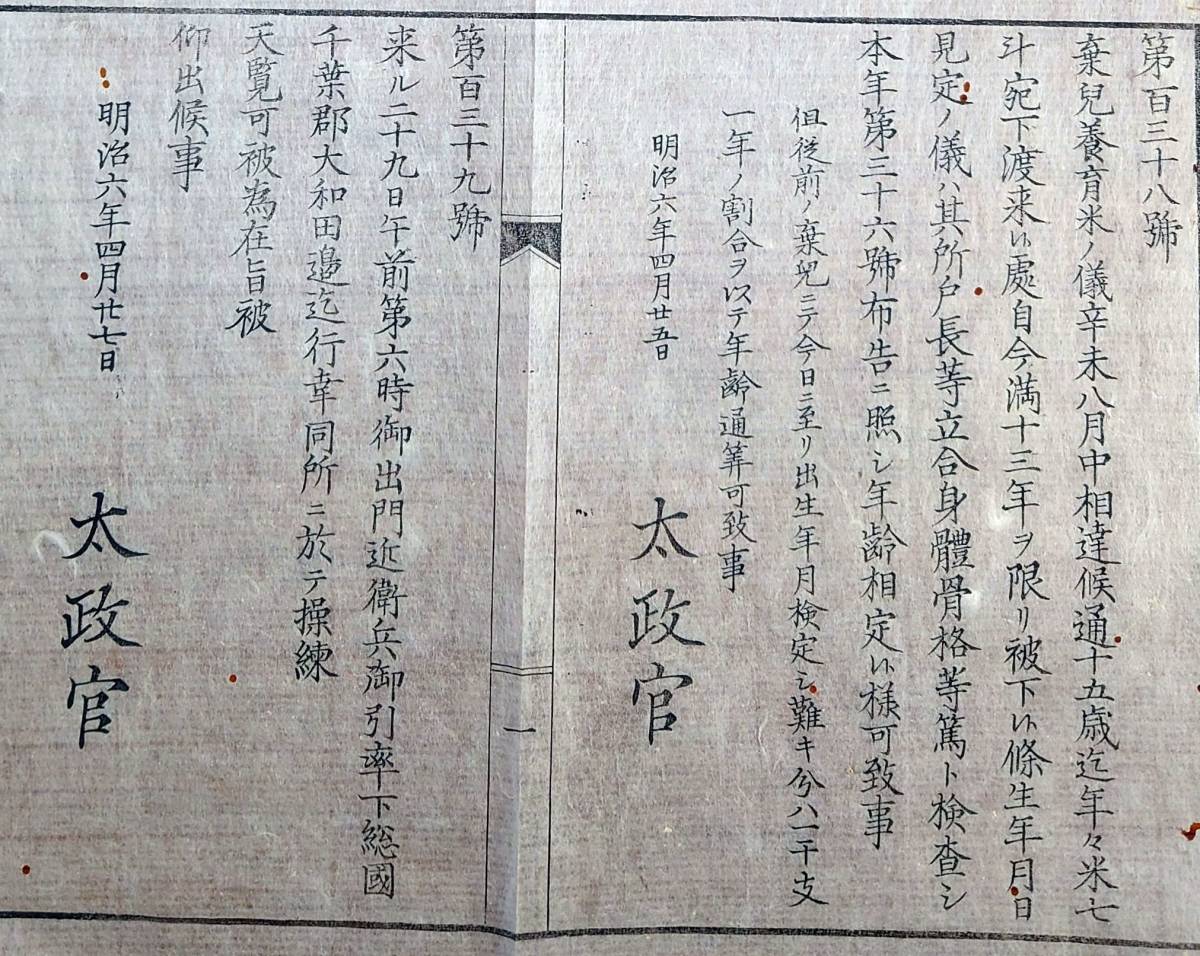 第百三十八號
棄兒養育米ノ儀辛未八月中相達候通十五歳迄年々米七
斗宛下渡来候處自今満十三年ヲ限リ被下候條生年月日
見定ノ儀ハ其所戸長等立合身體骨格等篤ト検査シ
本年第三十六號布告ニ照シ年齢相定候様可致事
但従前ノ棄兒ニテ今日ニ至リ出生年月検定シ難キ分ハ一干支
一年ノ割合ヲ以テ年齢通筭可致事
明治六年四月廿五日
太政官
一
第百三十九號
来ル二十九日午前第六時御出門近衛兵御引率下総國
千葉郡大和田邉迄行幸同所ニ於テ操練
天覧可被為在旨被
仰出候事
明治六年四月廿七日
太政官